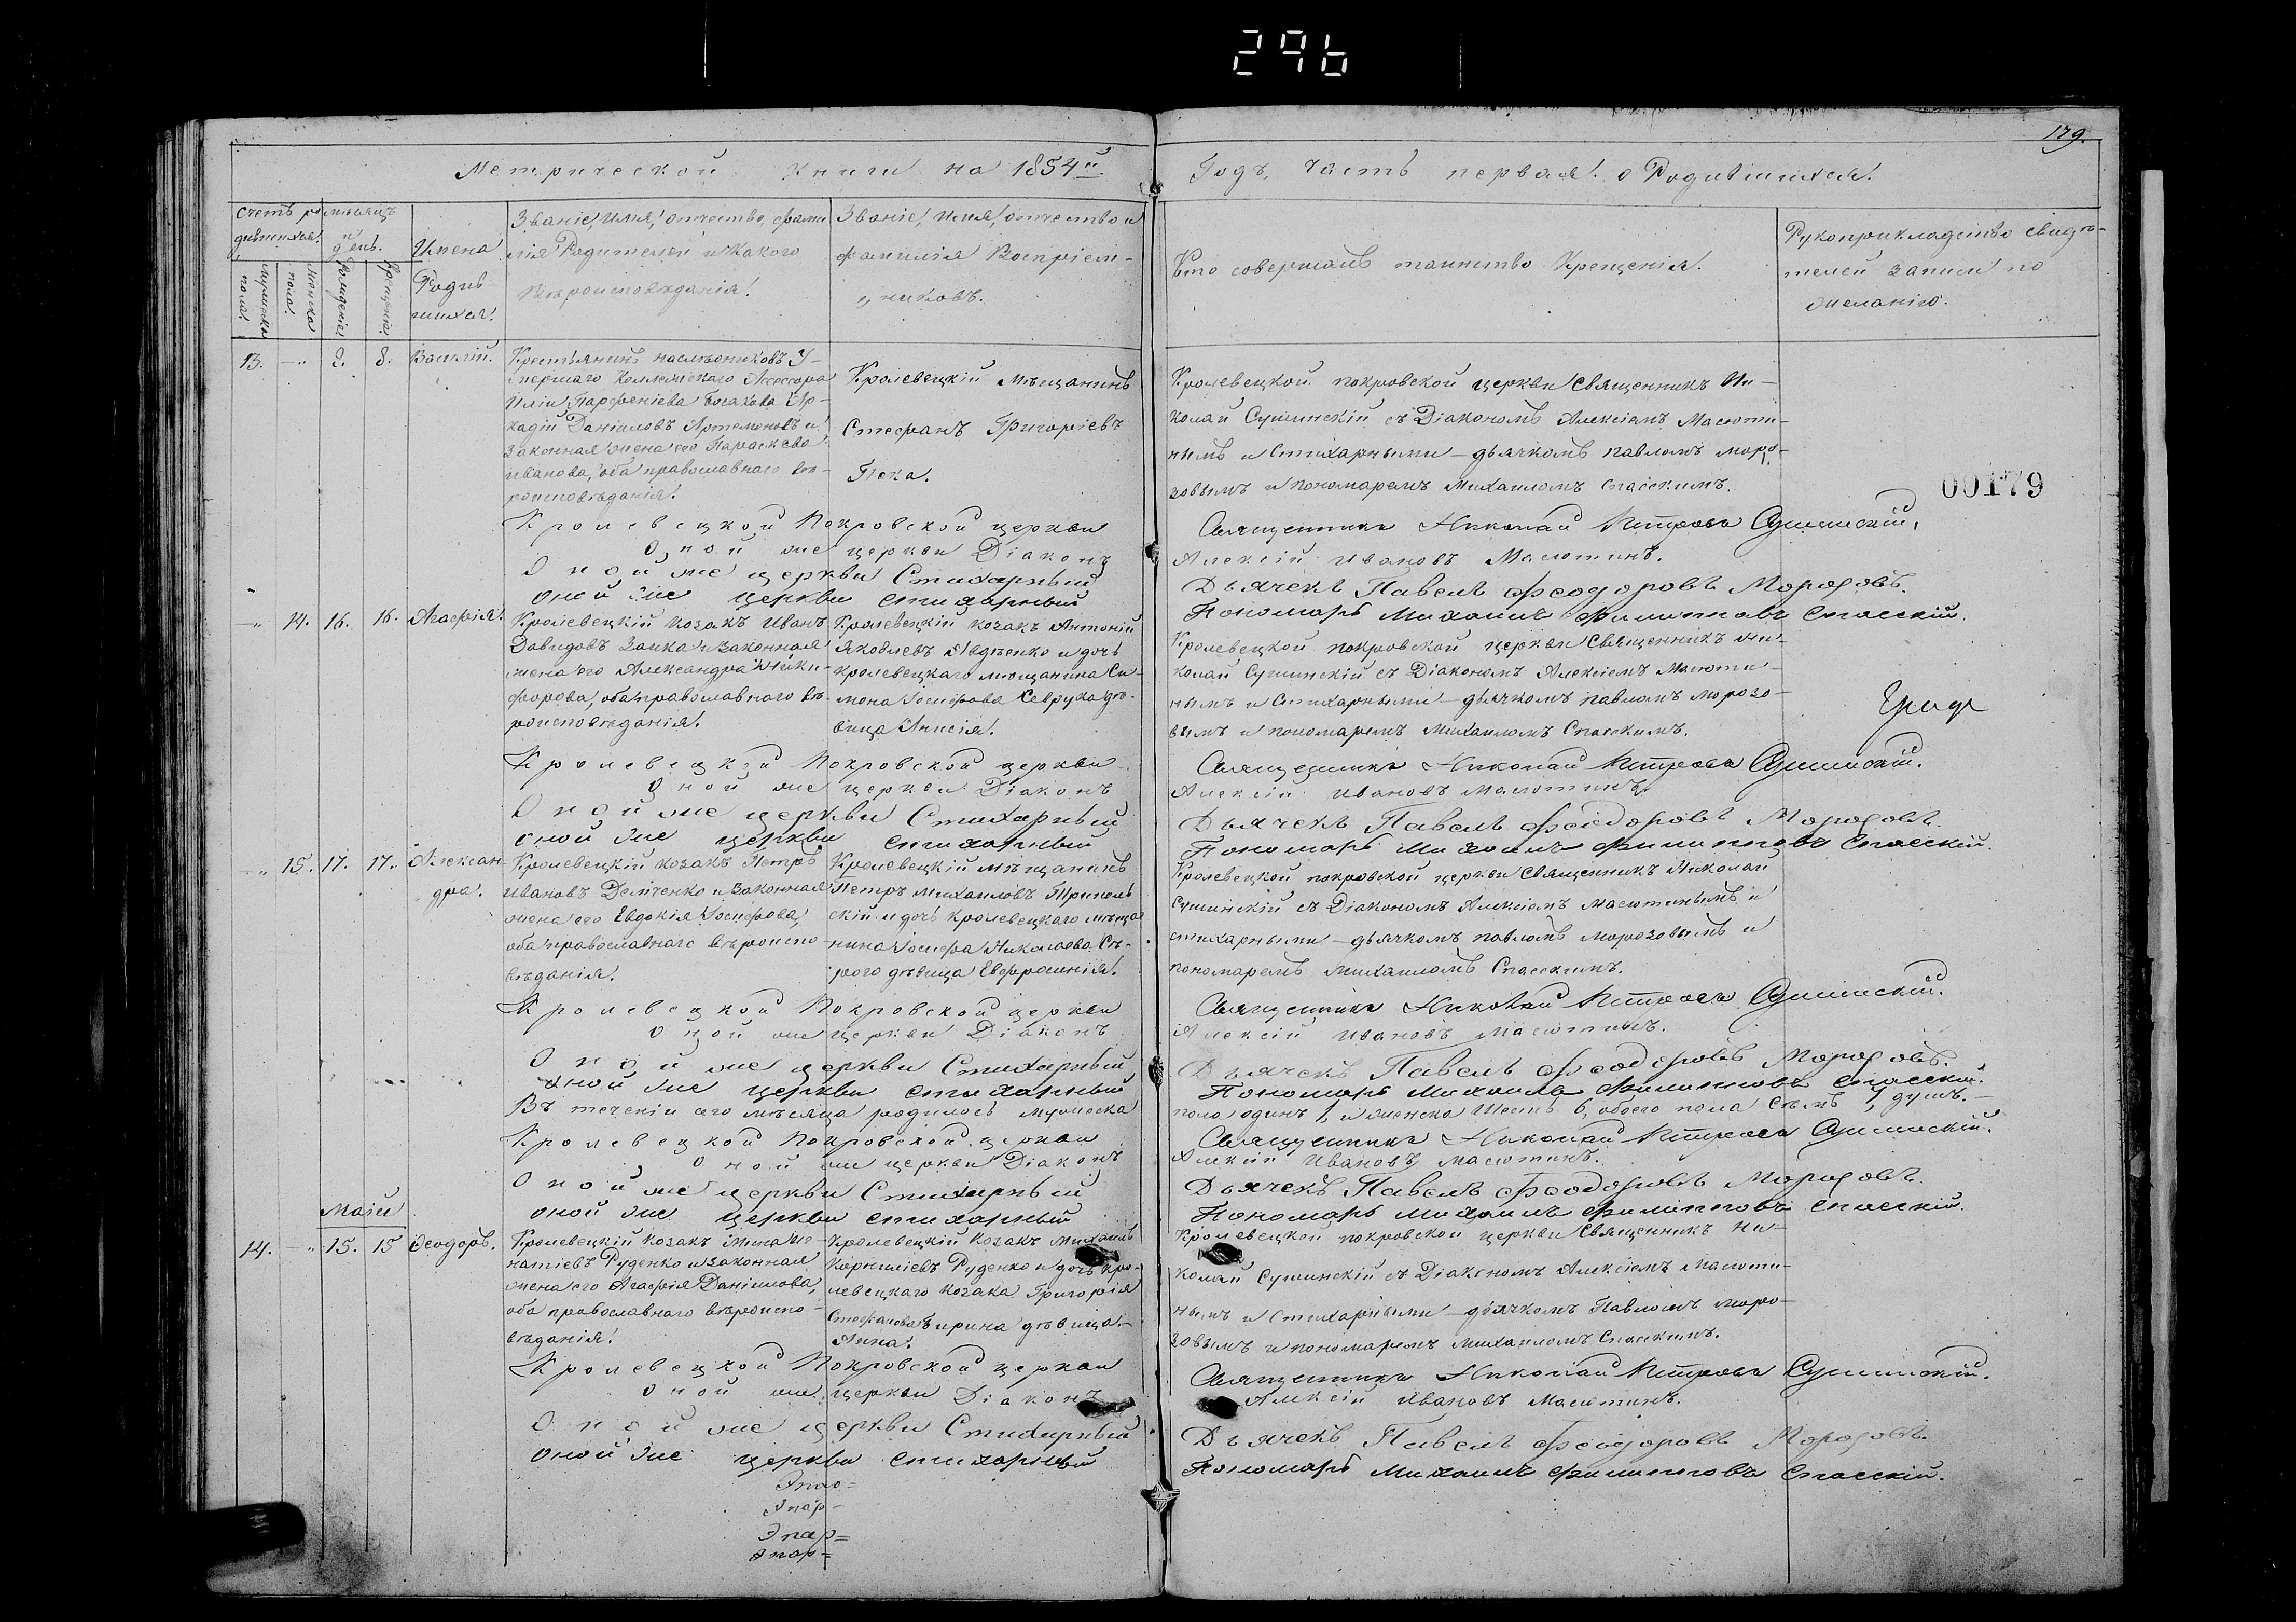 296
179.
Метрической книги на 1854й Годъ, часть первая! о Родившихся!
Счетъ ро
дившихся!
Мѣсяцъ
и
день.
Мужеска
пола!
Женска
пола!
Рожденія!
Крещенія!
Имена
Родив
шихся!
Званіе, Имя, отчество, фами
лія Родителей и Какого
Вѣроисповѣданія!
Званіе, Имя, отчество и
фамилія Воспріем-
никовъ.
Кто совершалъ таинство Крещенія.
Рукоприкладство свидѣ-
телей записи по
желанію.
13. -„ 8. 8. Василій.
Крестьянинъ наслѣдниковъ У-
мершаго Коллежскаго Ассесора
Иліи Парфеніева Ар-
кадій Даніиловъ Артемоновъ и
законная жена его Параскева
Иванова, оба православнаго вѣ-
роисповѣданія!
Кролевецкій Мѣщанинъ
Стефанъ Григоріевъ
Пека.
Кролевецкой покровской церкви Священникъ Ни-
колай Сушинскій съ Діакономъ Алексіемъ Масюти-
нымъ и Стихарными - дьячкомъ павломъ моро-
зовымъ и пономаремъ Михаиломъ Спасскимъ.
00179
Кролевецкой Покровской церкви Священникъ Николай Петровъ Сушинскій.
Оной же церкви Діаконъ Алексій Ивановъ Масютинъ.
Оной же церкви Стихарный Дьячекъ Павелъ Феодоровъ Морозовъ.
Оной же церкви стихарный Пономарь Михаилъ Филипповъ Спасскій.
-„ 14. 16. 16. Агафія!
Кролевецкій козакъ Иванъ
Давидовъ Заика и Законная
жена его Александра Ники-
форова, оба православнаго вѣ-
роисповѣданія!
Кролевецкій козакъ Антоній
Яковлевъ Явдѣенко и дочь
кролевецкаго мѣщанина Си-
мона Іосифова Севрука дѣ-
вица Анисія!
Кролевецкой покровской церкви Священникъ Ни-
колай Сушинскій съ Діакономъ Алексіемъ Масюти-
нымъ и Стихарными - дьячкомъ павломъ морозо-
вымъ и пономаремъ Михаиломъ Спасскимъ.
Кролевецкой Покровской церкви Священникъ Николай Петровъ Сушинскій.
Оной же церкви Діаконъ Алексій Ивановъ Масютинъ.
Оной же церкви Стихарный Дьячекъ Павелъ Феодоровъ Морозовъ.
оной же церкви стихарный Пономарь Михаилъ Филипповъ Спасскій.
-„ 15. 17. 17. Алексан-
дра!
Кролевецкій козакъ Петръ
Ивановъ Демченко и Законная
жена его Евдокія Іосифова,
оба православнаго вѣроиспо-
вѣданія!
Кролевецкій мѣщанинъ
Петръ Михаиловъ Триполь
скій и дочь кролевецкаго мѣща
нина Іосифа Николаева Сѣ-
рого дѣвица Евфросинія!
Кролевецкой покровской церкви Священникъ Николай
Сушинскій съ Діакономъ Алексіемъ Масютинымъ и
стихарными - дьячкомъ павломъ Морозовымъ и
пономаремъ Михаиломъ Спасскимъ.
Кролевецкой Покровской церкви Священникъ Николай Петровъ Сушинскій.
Оной же церкви Діаконъ Алексій Ивановъ Масютинъ.
Оной же церкви Стихарный Дьячекъ Павелъ Феодоровъ Морозовъ.
оной же церкви стихарный Пономарь Михаилъ Филипповъ Спасскій.
Въ теченіи сего мѣсяца родилось мужеска пола одинъ 1, и женска Шесть 6, обоего пола Семь 7 душъ.
Кролевецкой Покровской церкви Священникъ Николай Петровъ Сушинскій.
Оной же церкви Діаконъ Алексій Ивановъ Масютинъ.
Оной же церкви Стихарный Дьячекъ Павелъ Феодоровъ Морозовъ.
оной же церкви стихарный Пономарь Михаилъ Филипповъ Спасскій.
Маій
14. „ 15. 15 Феодоръ.
Кролевецкій козакъ Мина Иг-
натіевъ Руденко и законная
жена его Агафія Даніилова,
оба православнаго вѣроиспо-
вѣданія!
Кролевецкій Козакъ Михаилъ
Корниліевъ Руденко и дочь кро-
левецкаго козака Григорія
Стефанова дѣвица
Анна!
Кролевецкой покровской церкви Священникъ Ни-
колай Сушинскій съ Діакономъ Алексіемъ Масюти-
нымъ и Стихарными - дьячкомъ Павломъ моро-
зовымъ и пономаремъ Михаиломъ Спасскимъ.
Кролевецкой Покровской церкви Священникъ Николай Петровъ Сушинскій.
Оной же церкви Діаконъ Алексій Ивановъ Масютинъ.
Оной же церкви Стихарный Дьячекъ Павелъ Феодоровъ Морозовъ.
оной же церкви стихарный Пономарь Михаилъ Филипповъ Спасскій.
Эпар=
Эпар-
Эпар=
Эпар=